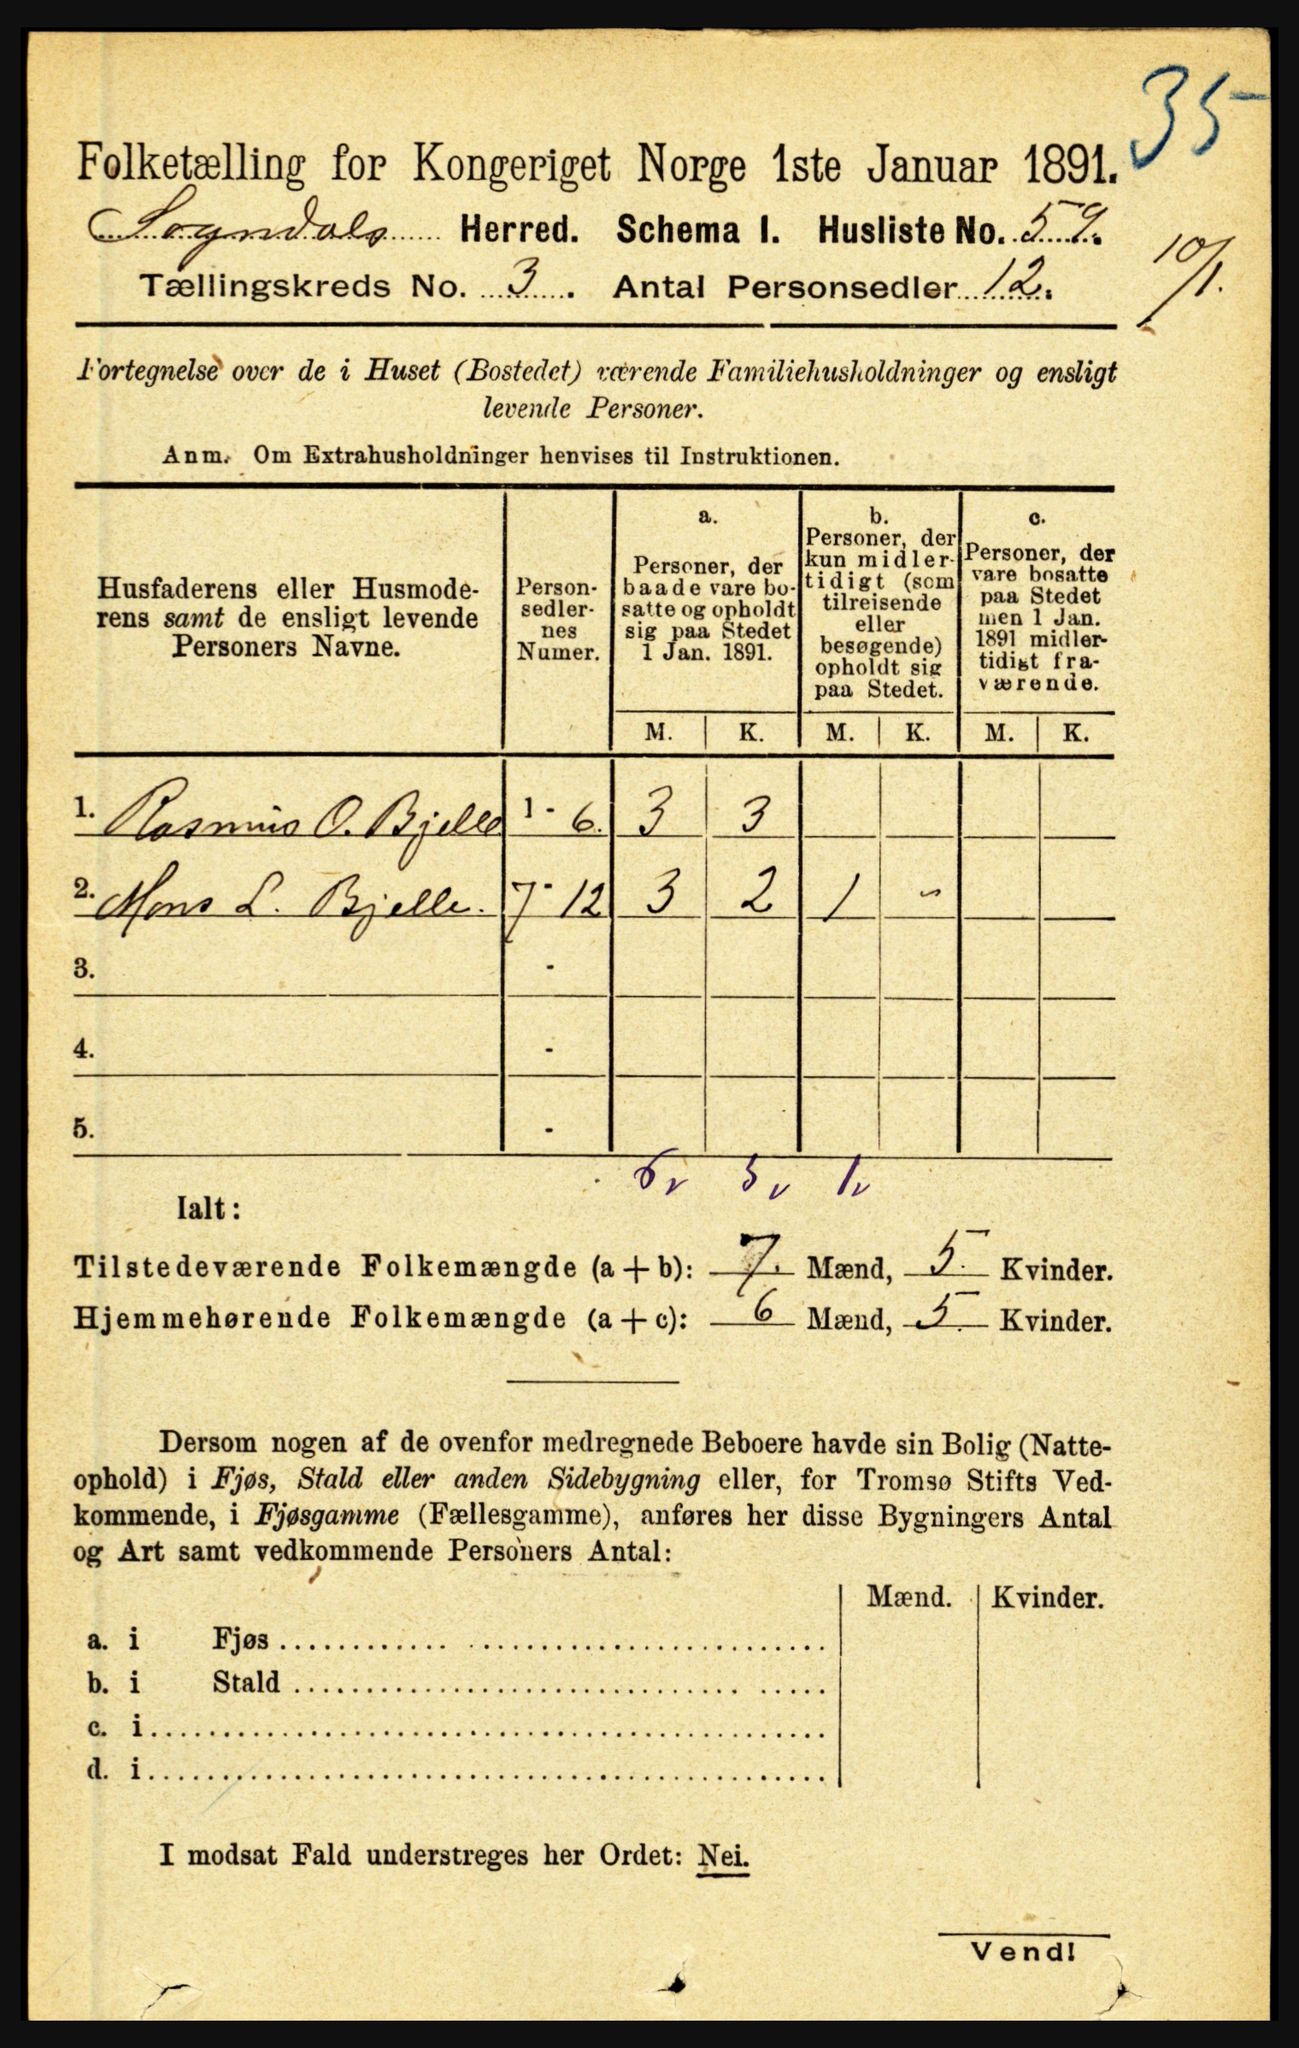 35
Folketælling for Kongeriget Norge 1ste Januar 1891.
Sogndals Herred. Schema I. Husliste No. 59.
10/1.
Tællingskreds No. 3. Antal Personsedler 12.
Fortegnelse over de i Huset (Bostedet) værende Familiehusholdninger og ensligt
levende Personer.
Anm. Om Extrahusholdninger henvises til Instruktionen.
Husfaderens eller Husmode-
rens samt de ensligt levende
Personers Navne.
Person-
sedler-
nes
Numer.
a.
Personer, der
baade vare bo-
satte og opholdt
sig paa Stedet
1 Jan. 1891.
b.
Personer, der
kun midler-
tidigt (som
tilreisende
eller
besøgende)
opholdt sig
paa Stedet.
c.
Personer, der
vare bosatte
paa Stedet
men 1 Jan.
1891 midler-
tidigt fra-
værende.
M. K. M. K. M. K.
1. Rasmus O. Bjelle 1 - 6. 3 3
2. Mons L. Bjelle. 7 - 12 3 2 1 -
3. -
4. -
5. -
6v 5v 1v
Ialt:
Tilstedeværende Folkemængde (a + b): 7. Mænd, 5. Kvinder.
Hjemmehørende Folkemængde (a + c): 6 Mænd, 5. Kvinder.
Dersom nogen af de ovenfor medregnede Beboere havde sin Bolig (Natte-
ophold) i Fjøs, Stald eller anden Sidebygning eller, for Tromsø Stifts Ved-
kommende, i Fjøsgamme (Fællesgamme), anføres her disse Bygningers Antal
og Art samt vedkommende Personers Antal:
Mænd. Kvinder.
a. i Fjøs
b. i Stald
c. i
d. i
I modsat Fald understreges her Ordet: Nei.
Vend!